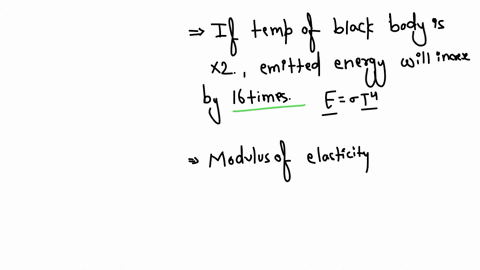 ⇒ If temp of black body is
x2., emitted energy will incex
by 16 times. E = σT⁴
⇒ Modulus of elasticity